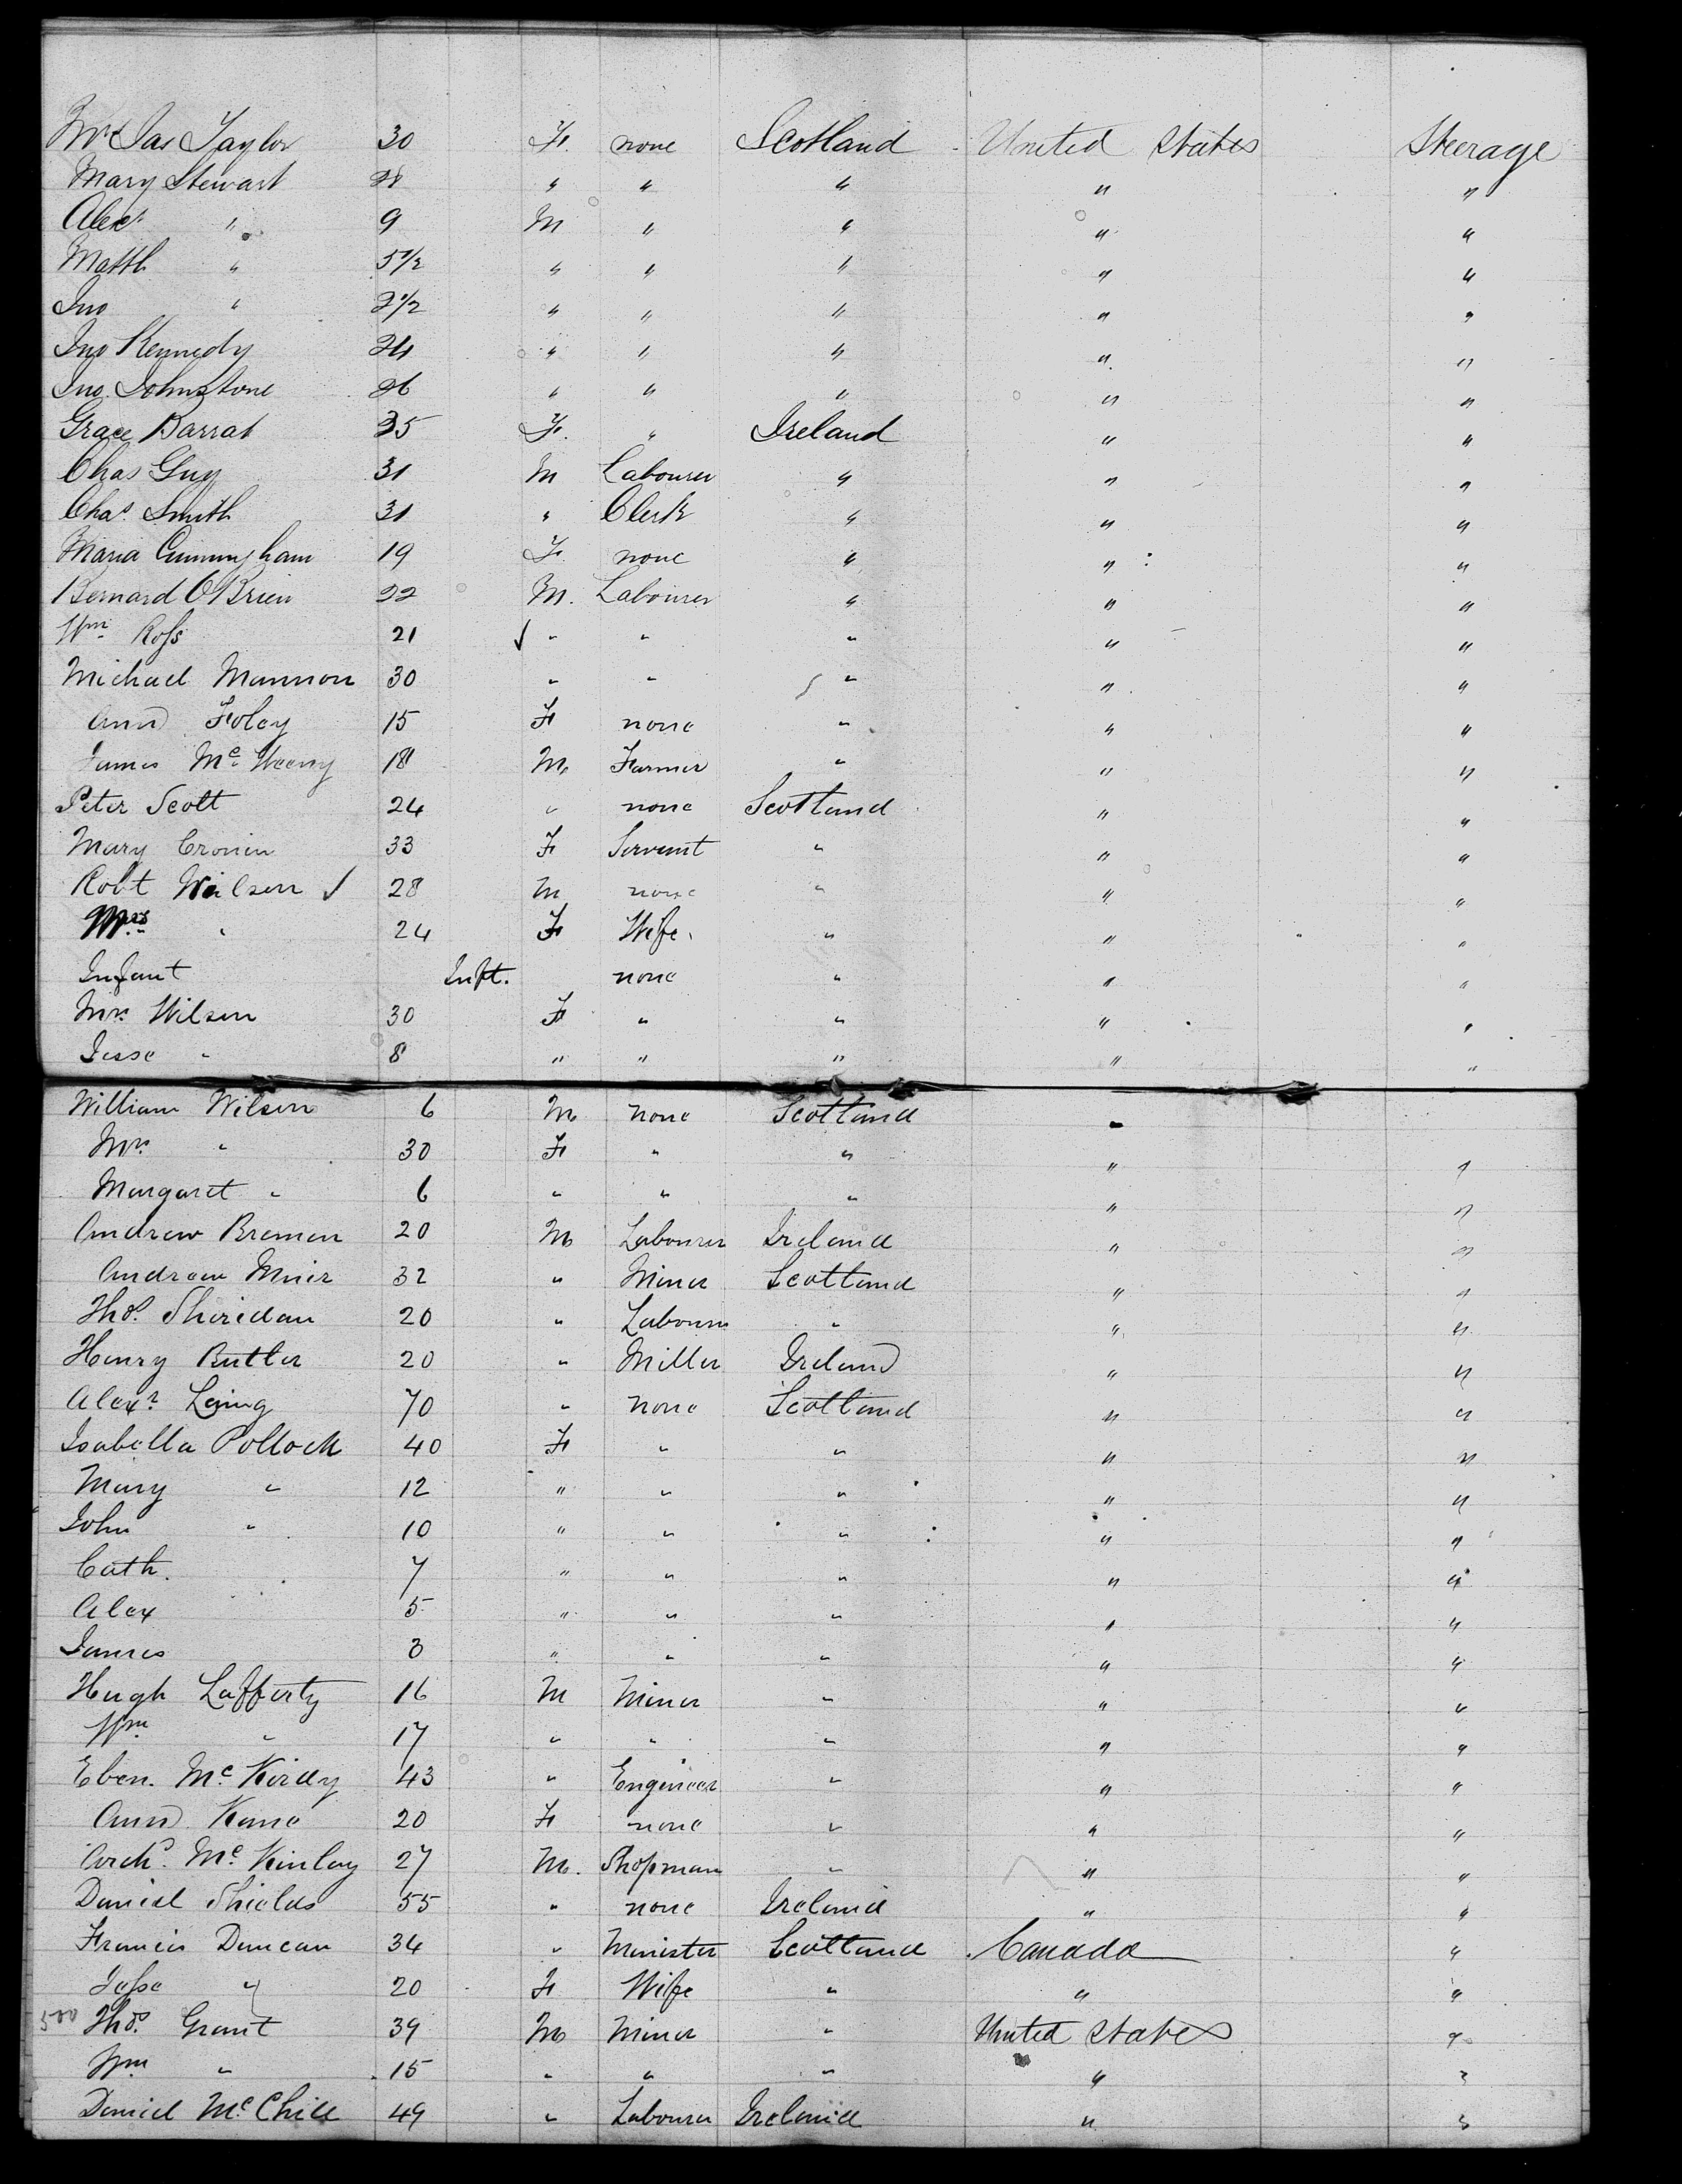 Mrs Jas Taylor 30 F. none Scotland United States Steerage
Mary Stewart 28 " " " " "
Alexr " 9 M " " " "
Matth " 5 1/2 " " " " "
Jno " 2 1/2 " " " " "
Jno Kennedy 24 " " " " "
Jno. Johnstone 26 " " " " "
Grace Barrat 35 F. " Ireland " "
Chas Guy 31 M Labourer " " "
Chas. Smith 31 " Clerk " " "
Maria Cunningham 19 F. none " " "
Bernard O'Brien 22 M. Labourer " " "
Wm Ross 21 " " " " "
Michael Mannon 30 " " " " "
Ann Foley 15 F none " " "
James Mc 18 M. Farmer " " "
Peter Scott 24 " none Scotland " "
Mary Cronin 33 F Servant " " "
Robt Wilson 28 M none " " "
Mrs " 24 F Wife " " "
Infant Inft. none " " "
Mrs. Wilson 30 F " " " "
Jesse " 8 " " " " "
William Wilson 6 M none Scotland "
Mrs. " 30 F " " " "
Margaret " 6 " " " " "
Andrew Brennen 20 M Labourer Ireland " "
Andrew Muir 32 " Miner Scotland " "
Thos. Sheridan 20 " Labourer " " "
Henry Butler 20 " Miller Ireland " "
Alexr. Laing 70 " none Scotland " "
Isabella Pollock 40 F " " " "
Mary " 12 " " " " "
John " 10 " " " " "
Cath. 7 " " " " "
Alex 5 " " " " "
James 3 " " " " "
Hugh Lafferty 16 M Miner " " "
Wm " 17 " " " " "
Eben. Mc. Kirdy 43 " Engineer " " "
Ann Kane 20 F none " " "
Archd. Mc. Kinlay 27 M. Shopman " " "
Daniel Shields 55 " none Ireland " "
Francis Duncan 34 " Minister Scotland Canada "
Jesse " 20 F Wife " " "
500 Thos. Grant 39 M Miner " United States "
Wm " 15 " " " " "
Daniel Mc. 49 " Labourer Ireland " "